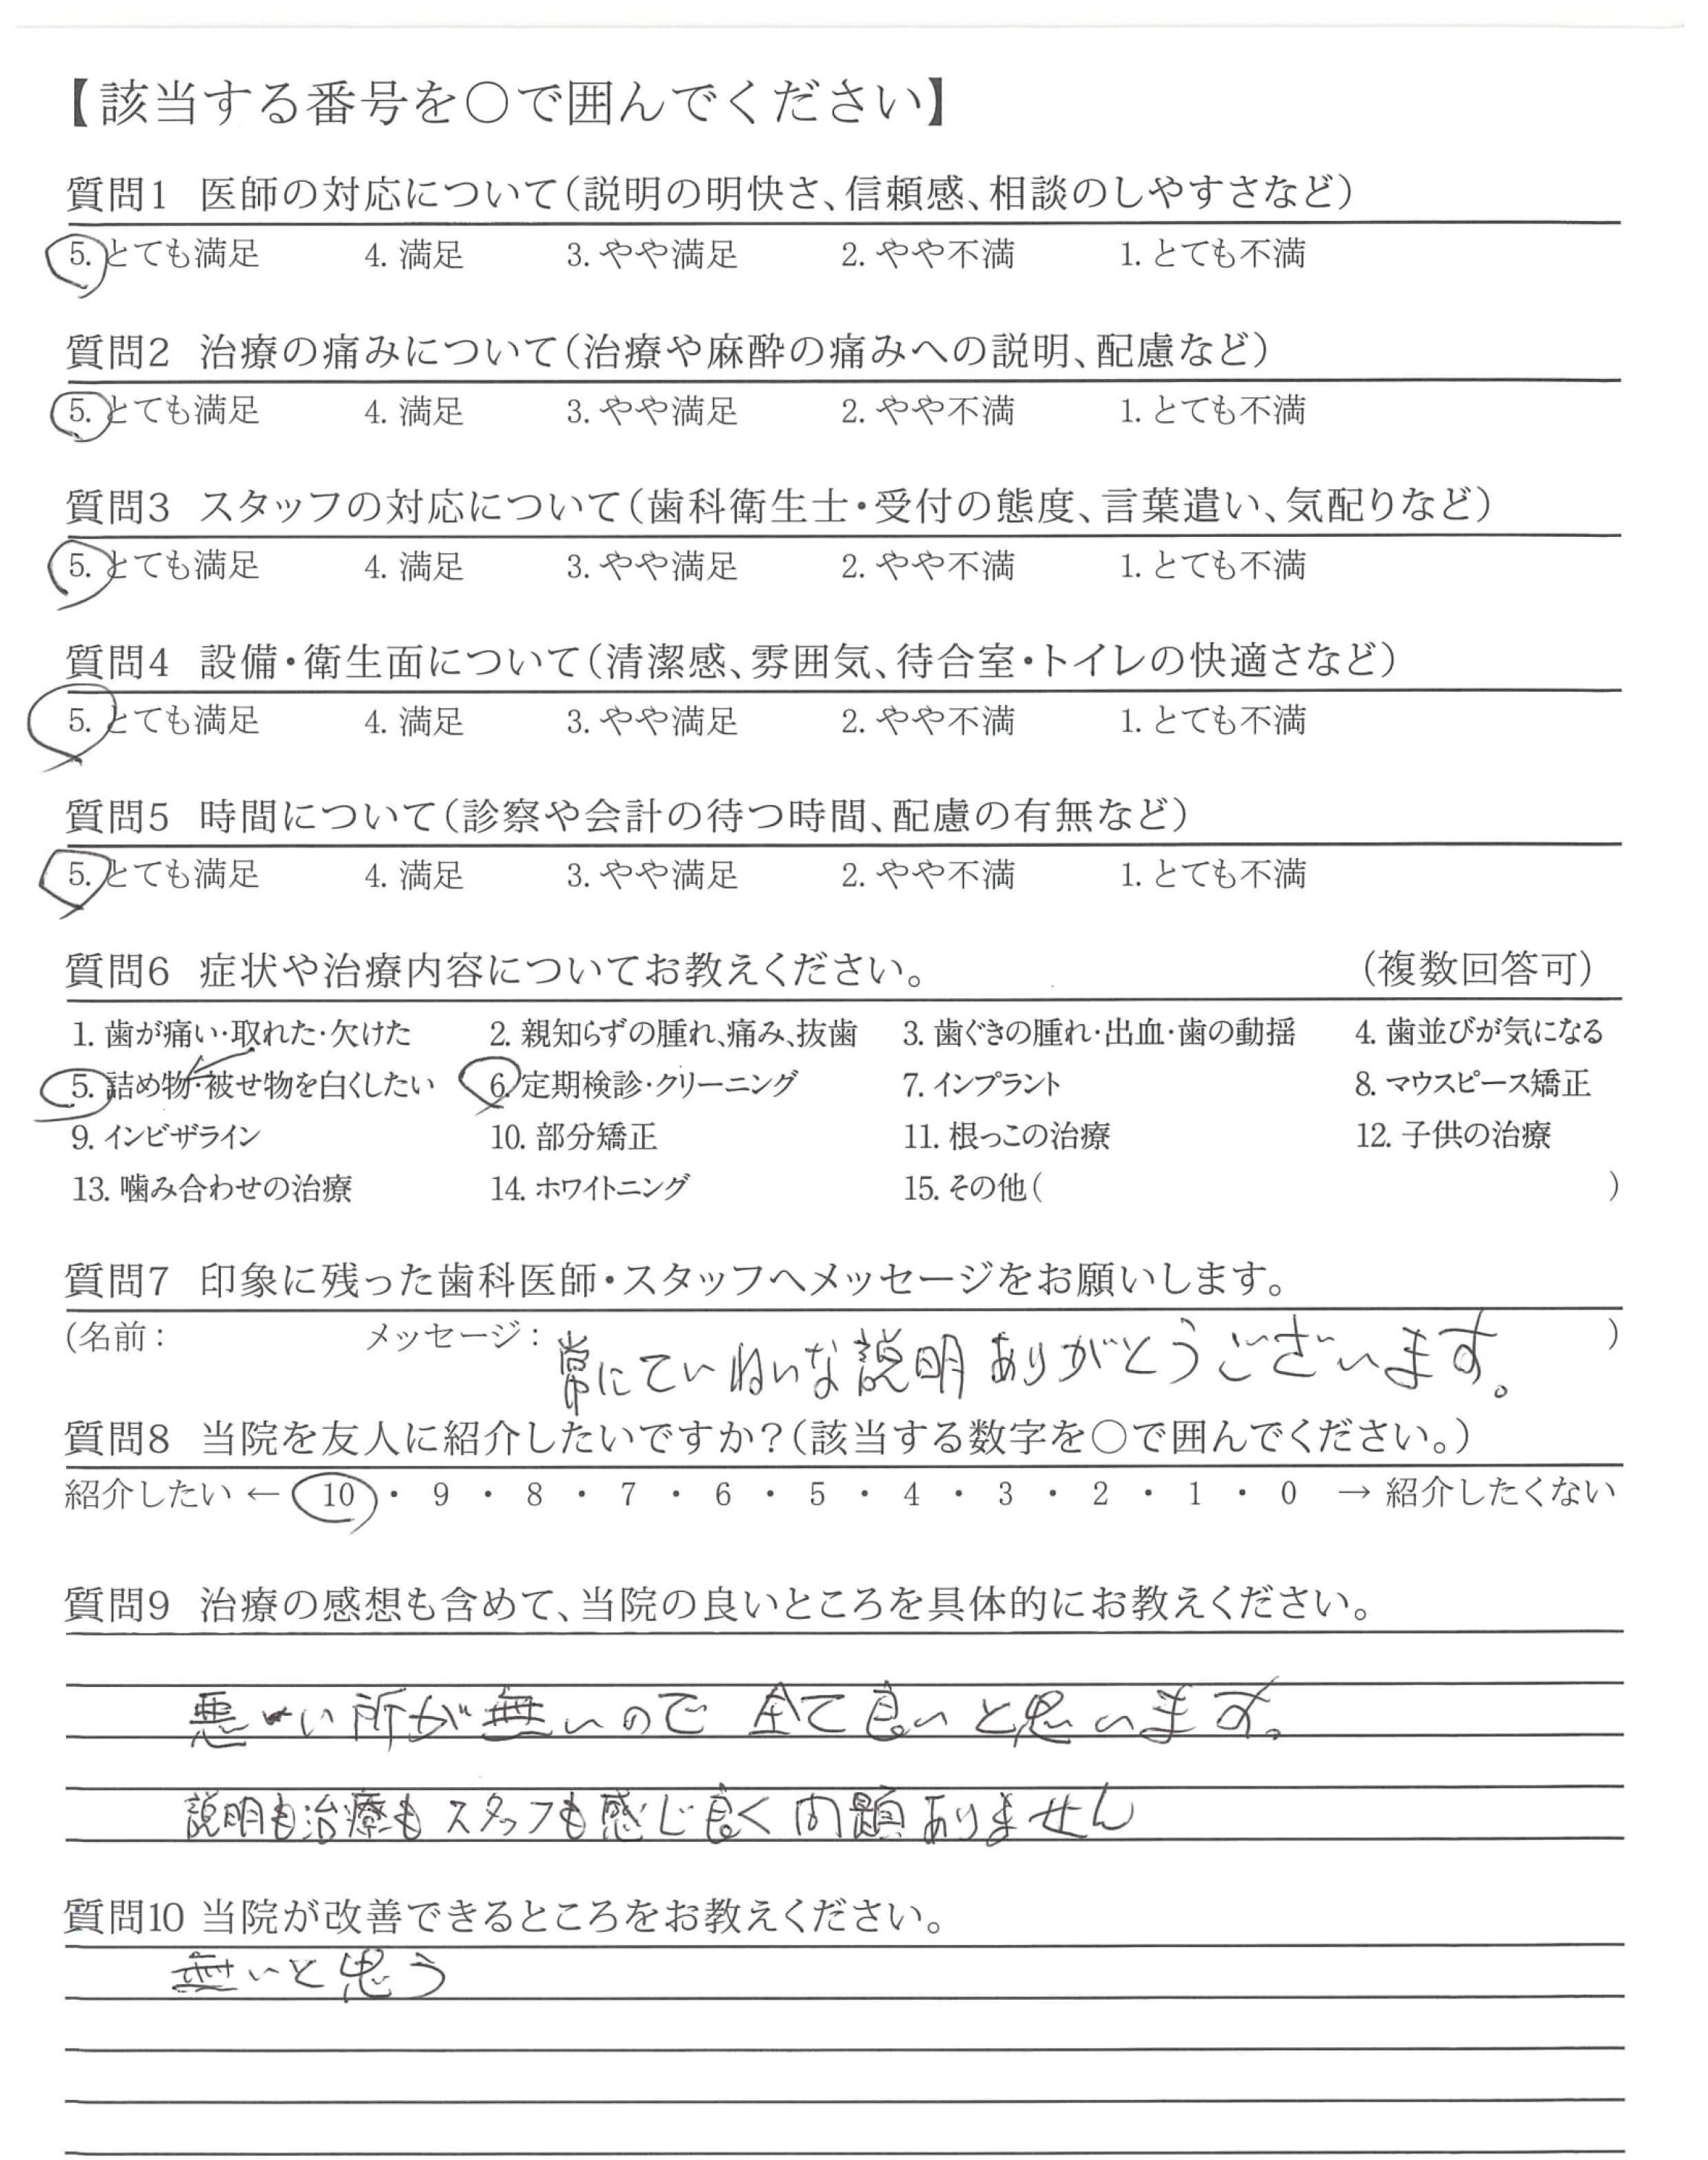 【該当する番号を○で囲んでください】
質問1 医師の対応について(説明の明快さ、信頼感、相談のしやすさなど)
5. とても満足 4. 満足 3. やや満足 2. やや不満 1. とても不満
質問2 治療の痛みについて(治療や麻酔の痛みへの説明、配慮など)
5. とても満足 4. 満足 3. やや満足 2. やや不満 1. とても不満
質問3 スタッフの対応について(歯科衛生士・受付の態度、言葉遣い、気配りなど)
5. とても満足 4. 満足 3. やや満足 2. やや不満 1. とても不満
質問4 設備・衛生面について(清潔感、雰囲気、待合室・トイレの快適さなど)
5. とても満足 4. 満足 3. やや満足 2. やや不満 1. とても不満
質問5 時間について(診察や会計の待つ時間、配慮の有無など)
5. とても満足 4. 満足 3. やや満足 2. やや不満 1. とても不満
質問6 症状や治療内容についてお教えください。 (複数回答可)
1. 歯が痛い・取れた・欠けた 2. 親知らずの腫れ、痛み、抜歯 3. 歯ぐきの腫れ・出血・歯の動揺 4. 歯並びが気になる
5. 詰め物・被せ物を白くしたい 6. 定期検診・クリーニング 7. インプラント 8. マウスピース矯正
9. インビザライン 10. 部分矯正 11. 根っこの治療 12. 子供の治療
13. 噛み合わせの治療 14. ホワイトニング 15. その他( )
質問7 印象に残った歯科医師・スタッフへメッセージをお願いします。
(名前: メッセージ: 常にていねいな説明ありがとうございます。 )
質問8 当院を友人に紹介したいですか?(該当する数字を○で囲んでください。)
紹介したい ← 10 ・ 9 ・ 8 ・ 7 ・ 6 ・ 5 ・ 4 ・ 3 ・ 2 ・ 1 ・ 0 → 紹介したくない
質問9 治療の感想も含めて、当院の良いところを具体的にお教えください。
悪い所が無いので 全て良いと思います。
説明も治療もスタッフも感じ良く問題ありません
質問10 当院が改善できるところをお教えください。
無いと思う